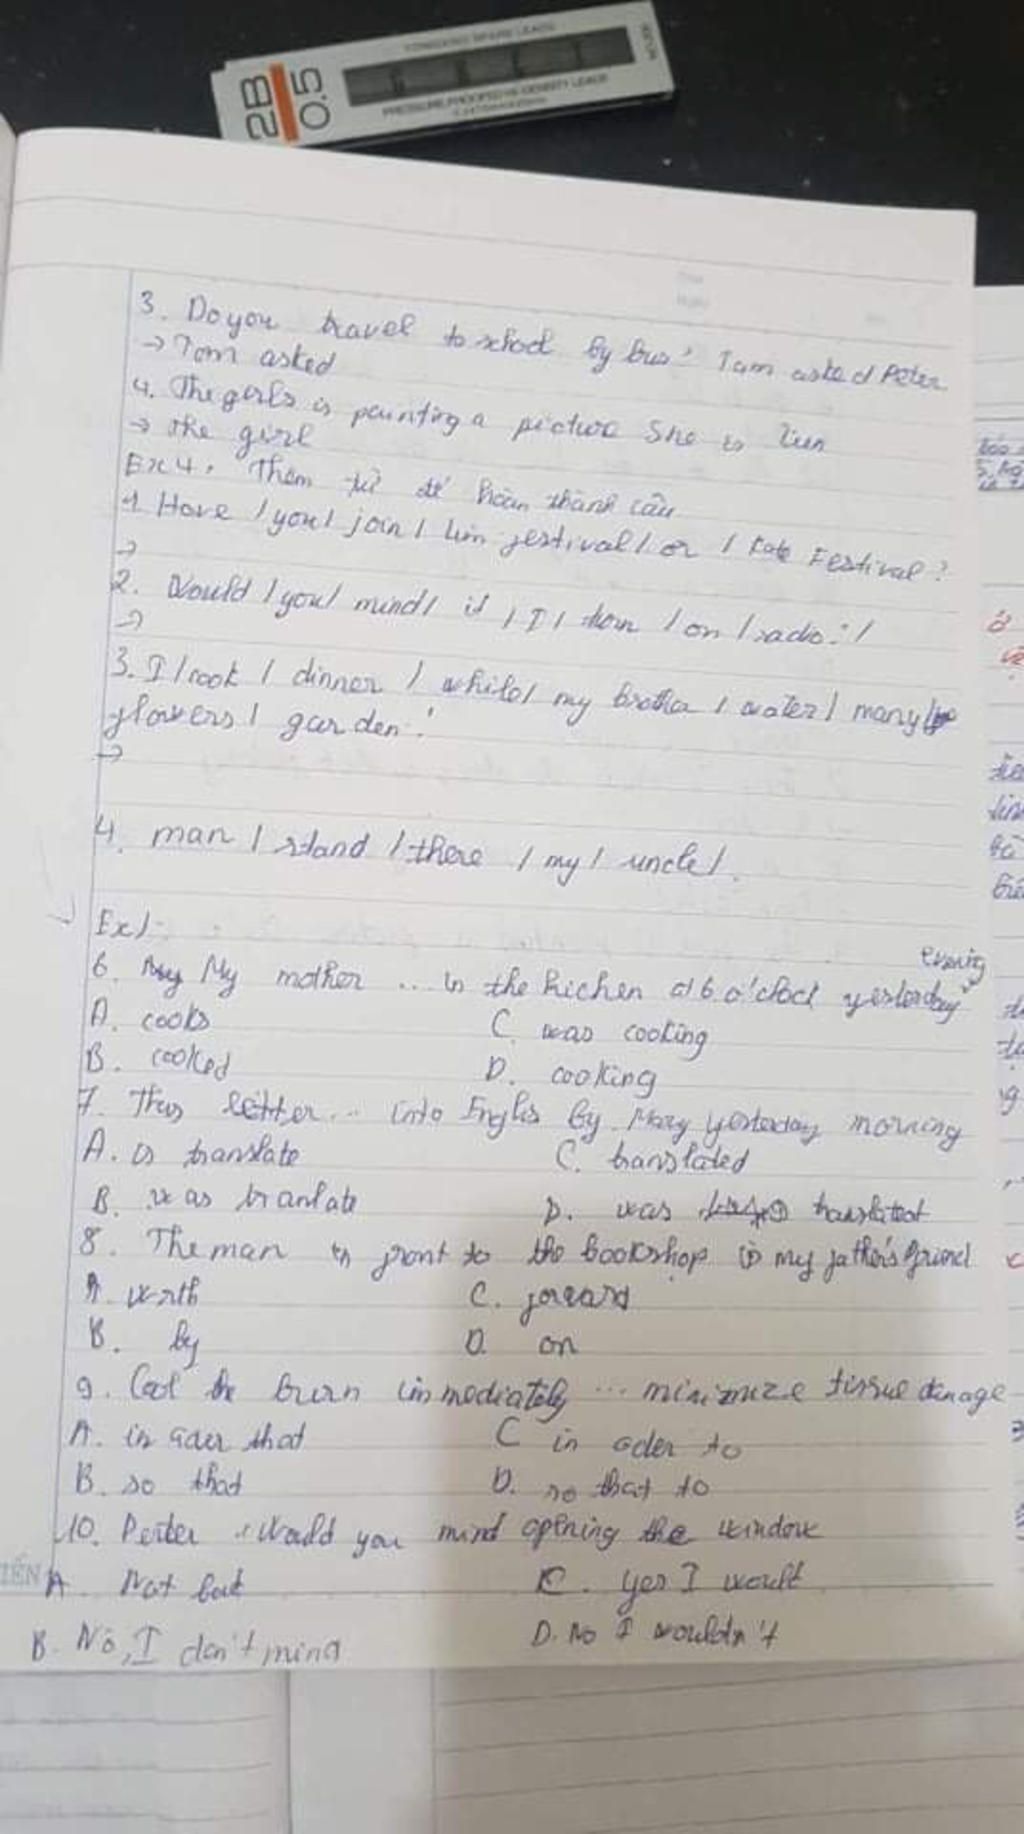 2B
0.5
TONGXING SPARE LEADS
PRESSURE PROOFED HI-DENSITY LEADS
3. Do you travel to school by bus? Tom asked Peter
→ Tom asked
4. The girls is painting a picture She is Lien
→ the girl
Ex 4. Thêm từ để hoàn thành câu
1 Have / you / join / Lim festival / or / Kate Festival?
→
2. Would / you / mind / if / I / turn / on / radio? /
→
3. I / cook / dinner / while / my brother / water / many
flowers / garden.
→
4. man / stand / there / my / uncle /.
Ex1:
evening
6. My mother ... in the kichen at 6 o'clock yesterday
A. cooks C. was cooking
B. cooked D. cooking
7. This letter ... into Englis by Mary yesterday morning
A. is translate C. translated
B. was tranlate D. was translated
8. The man in front to the bookshop is my father's friend
A. with C. forward
B. by D. on
9. Cool the burn immediately ... minimize tissue damage
A. in oder that C in oder to
B. so that D. so that to
10. Perter: Would you mind opening the window
A. Not but C. yes I would
B. No, I don't mind D. No I wouldn't